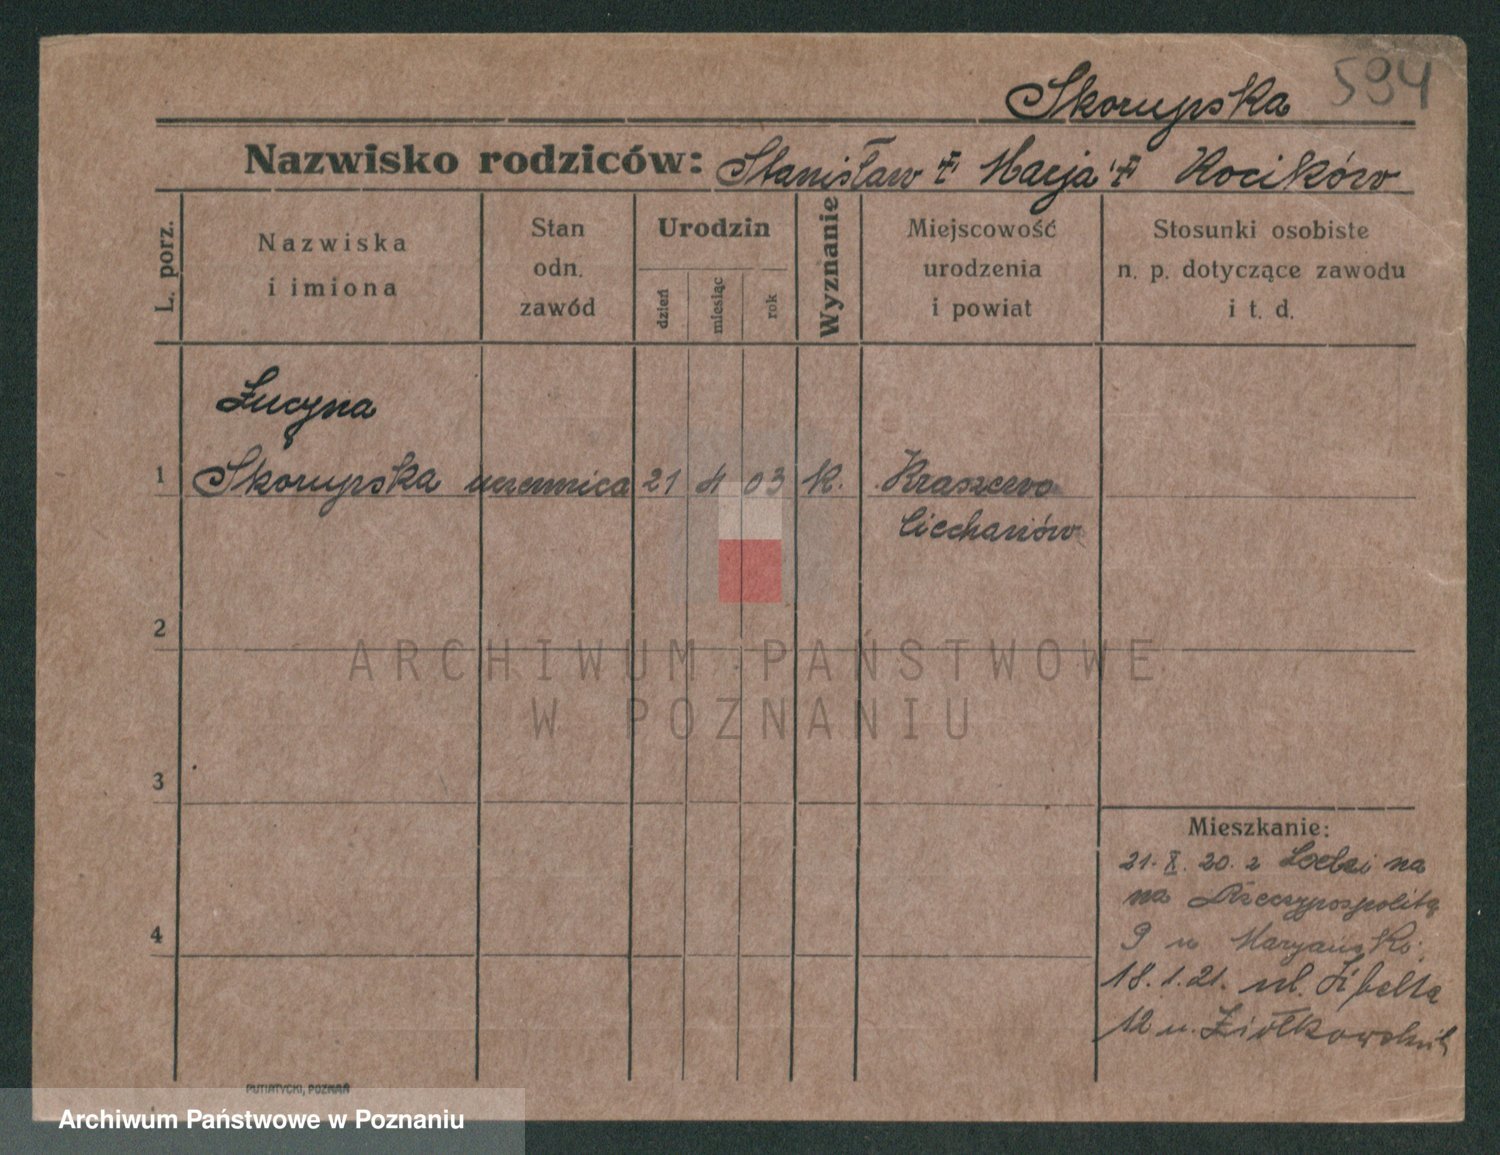 Skorupska 594
Nazwisko rodziców: Stanisław i Marja z Kocików
L. porz.
Nazwiska
i imiona
Stan
odn.
zawód
Urodzin
dzień
miesiąc
rok
Wyznanie
Miejscowość
urodzenia
i powiat
Stosunki osobiste
n. p. dotyczące zawodu
i t. d.
Łucyna
1 Skorupska uczennica 21 4 03 k. Kraszewo
Ciechanów
2
3
4
Mieszkanie:
21. X. 20. z Łodzi na
na Rzeczypospolitą
9 u
18.1.21. ul. Libelta
12 u. Ziółkowskich
PUTIATYCKI, POZNAŃ
ARCHIWUM PAŃSTWOWE
W POZNANIU
Archiwum Państwowe w Poznaniu